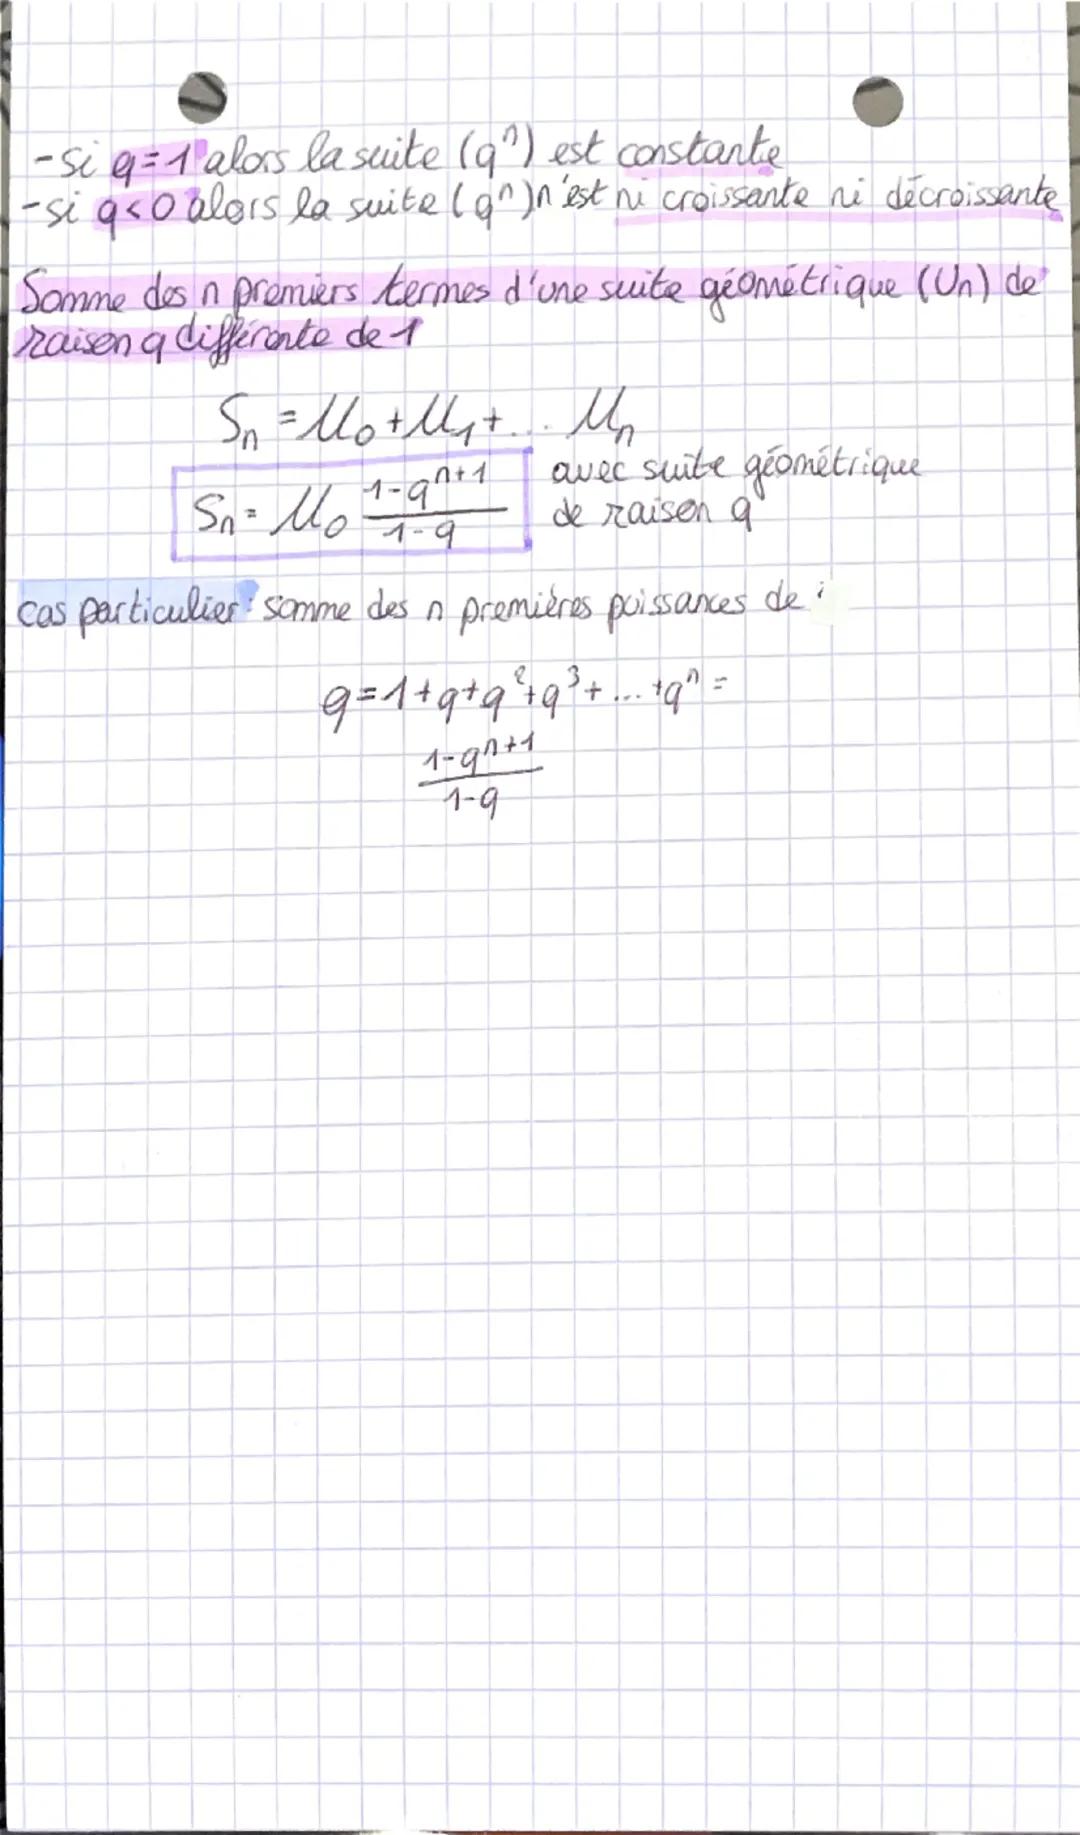 -si q=1 alors la suite (qⁿ) est constante
-si q<0 alors la suite (qⁿ) n'est ni croissante ni décroissante
Somme des n premiers termes d'une suite géométrique (Un) de
raison q différente de 1
Sn = U0 + U1 + ... Un
Sn = U0 (1-qⁿ⁺¹)/(1-q) avec suite géométrique
de raison q
cas particulier : somme des n premières puissances de :
q = 1+q+q²+q³+ ... +qⁿ =
(1-qⁿ⁺¹)/(1-q)